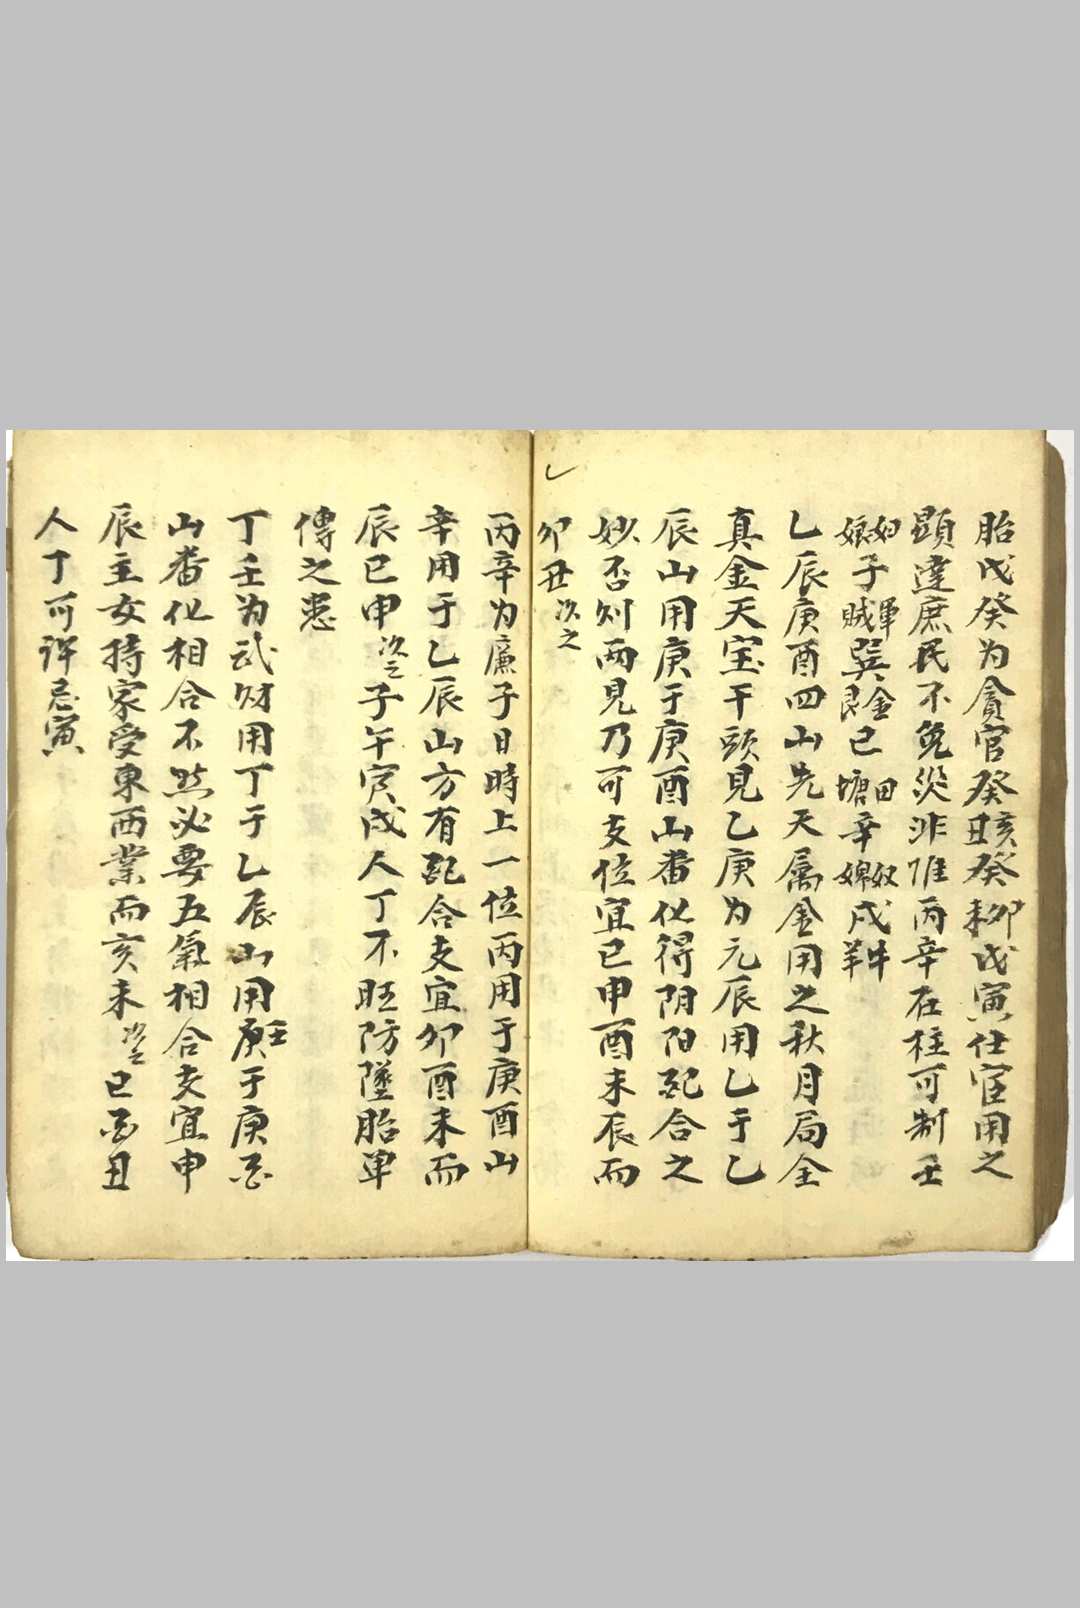 胎戊癸为貪官癸亥丑癸卯未戊寅仕宦用之
顕達庶民不免災非惟丙辛在柱可制壬
妇娘子軍贼巽金艮巳田塘辛奴婢戌牛羊
乙辰庚酉四山先天属金用之秋月局全
真金天宝干頭見乙庚为元辰用乙于乙
辰山用庚于庚酉山番化得阴阳配合之
妙否则兩見乃可支位宜巳申酉未辰而
卯丑次之
丙辛为廉子日時上一位丙用于庚酉山
辛用于乙辰山方有配合支宜卯酉未而
辰巳申次之子午寅戌人丁不旺防墜胎单
傳之患
丁壬为武财用丁于乙辰山用庚壬于庚酉
山番化相合不然必要五氣相合支宜申
辰主女持家受東西業而亥未次之巳酉丑
人丁可许忌寅